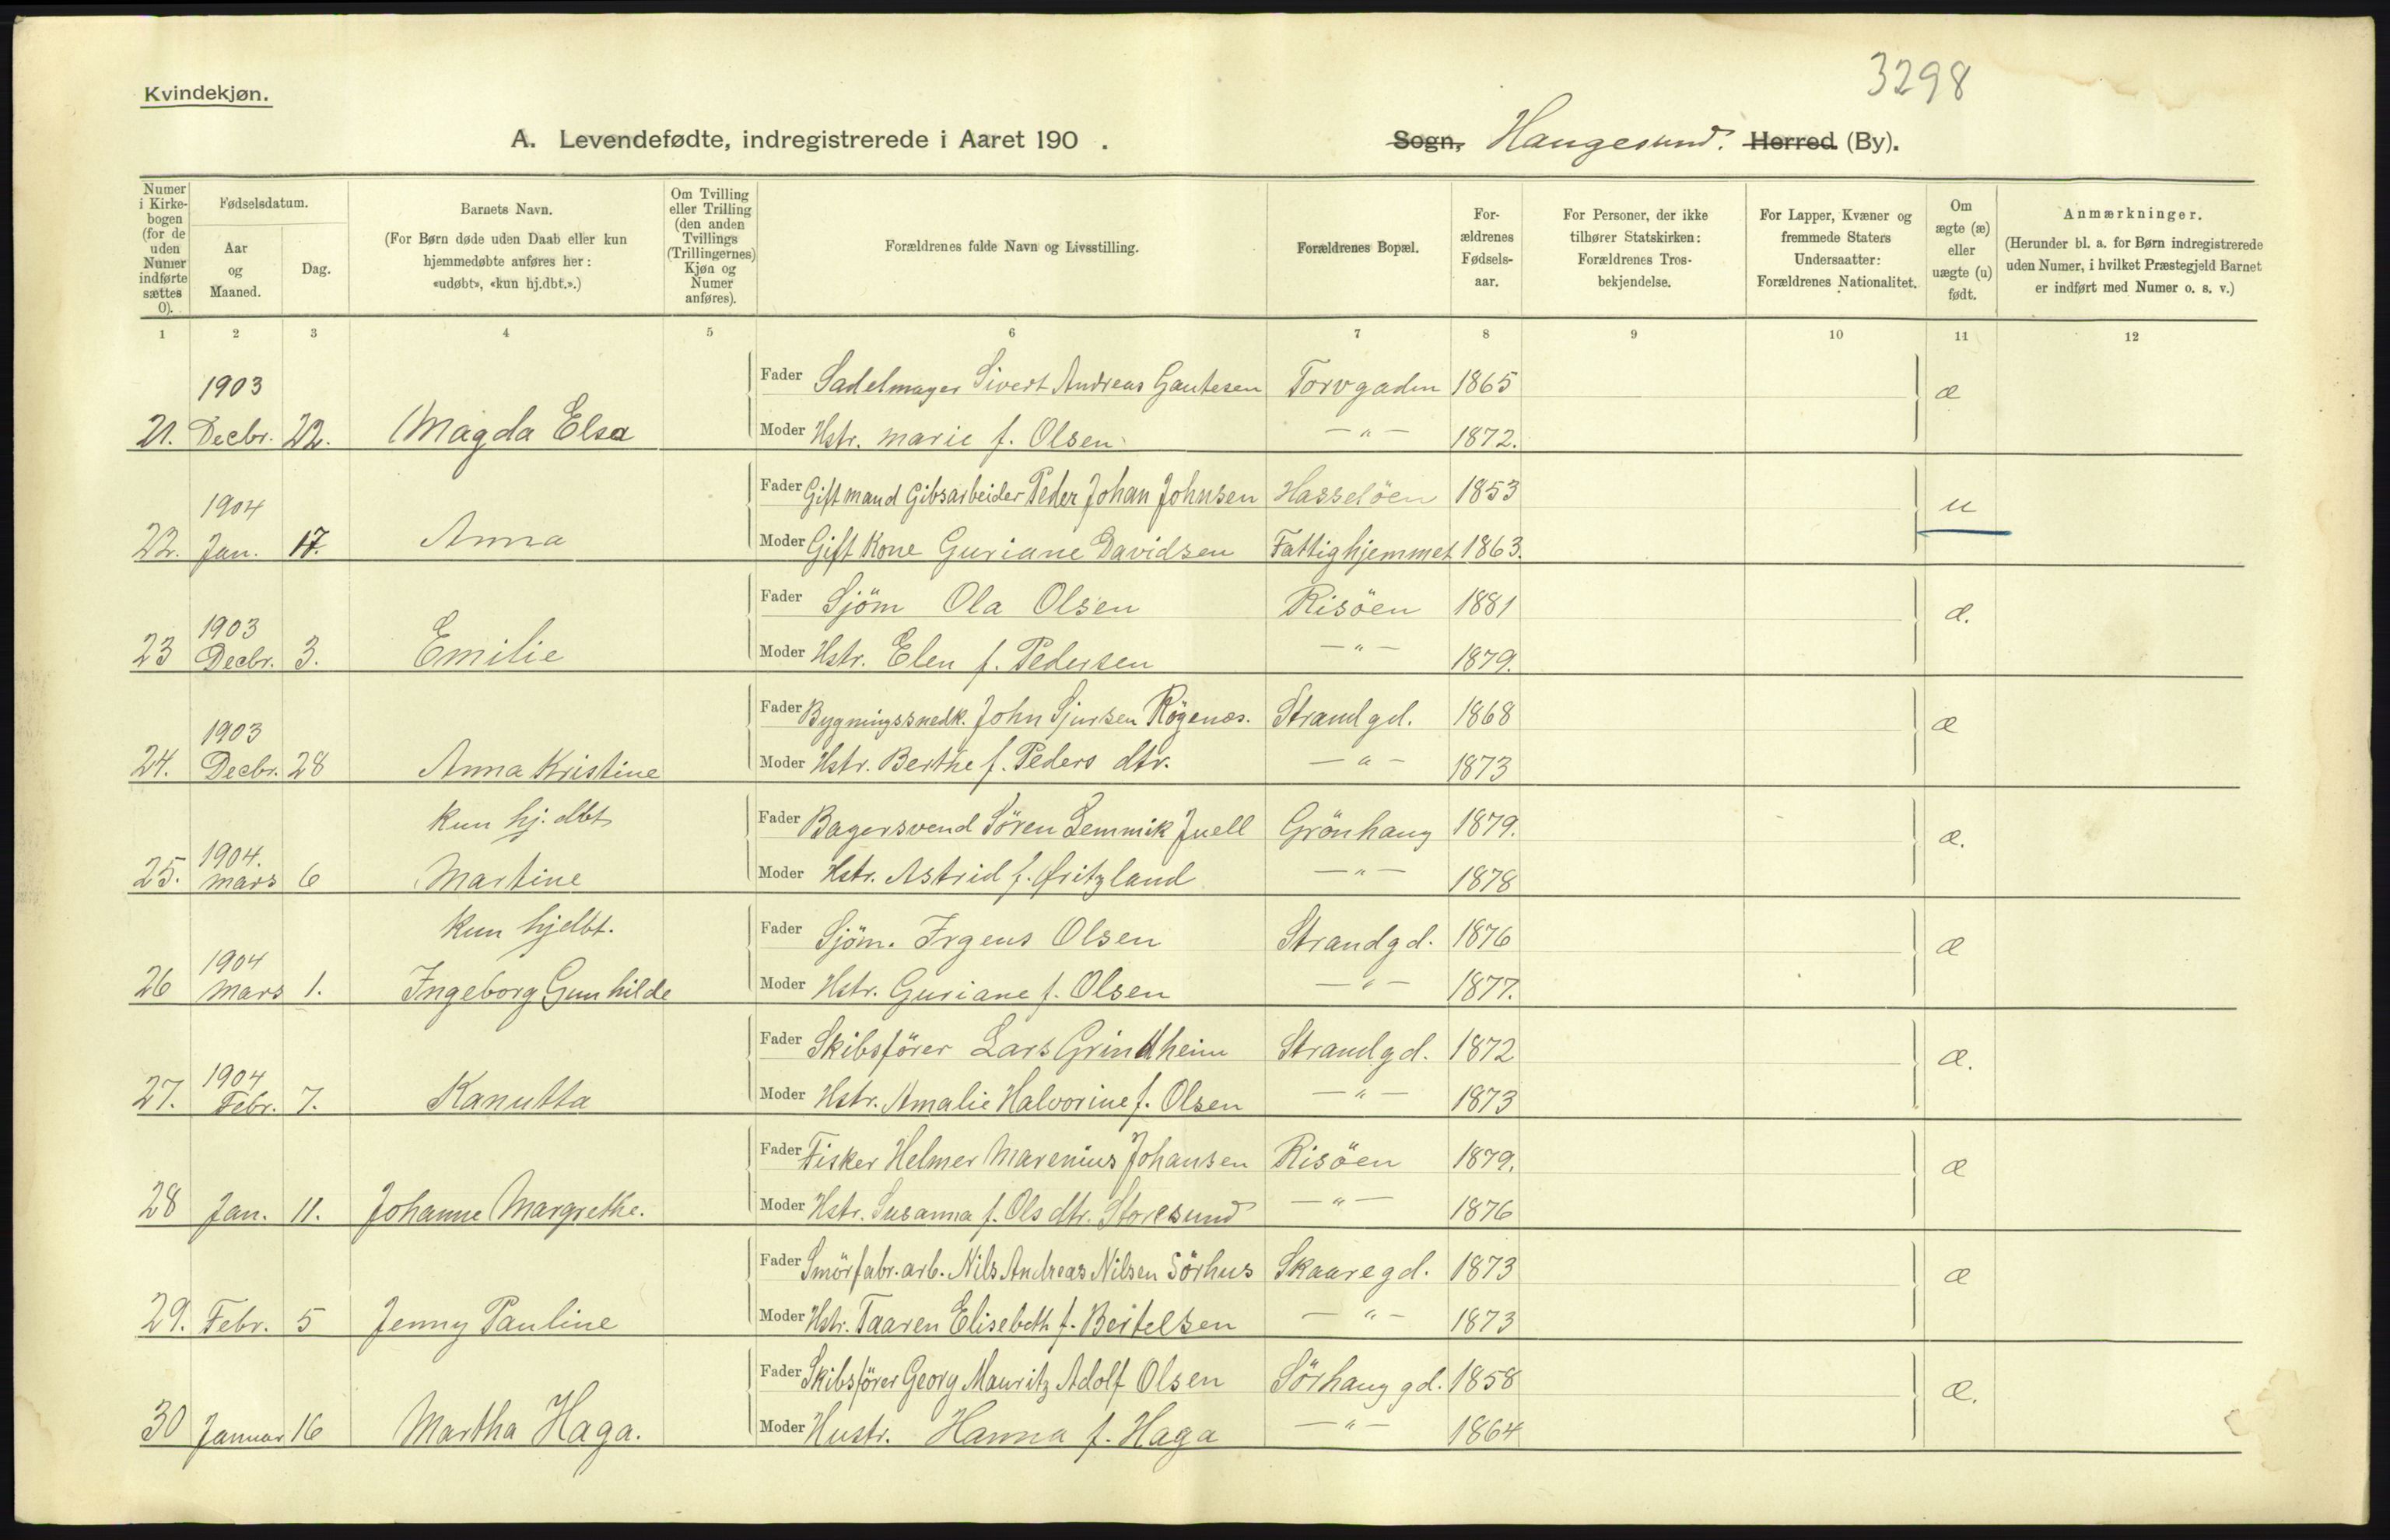 3298
Kvindekjøn.
A. Levendefødte, indregistrerede i Aaret 190 . Sogn, Haugesund. Herred (By).
Numer i Kirkebogen (for de uden Numer indførte sættes 0).
Fødselsdatum.
Aar og Maaned.
Dag.
Barnets Navn.
(For Børn døde uden Daab eller kun hjemmedøbte anføres her: «udøbt», «kun hj.dbt.».)
Om Tvilling eller Trilling (den anden Tvillings (Trillingernes) Kjøn og Numer anføres).
Forældrenes fulde Navn og Livsstilling.
Forældrenes Bopæl.
Forældrenes Fødselsaar.
For Personer, der ikke tilhører Statskirken: Forældrenes Trosbekjendelse.
For Lapper, Kvæner og fremmede Staters Undersaatter: Forældrenes Nationalitet.
Om ægte (æ) eller uægte (u) født.
Anmærkninger.
(Herunder bl. a. for Børn indregistrerede uden Numer, i hvilket Præstegjeld Barnet er indført med Numer o. s. v.)
1 2 3 4 5 6 7 8 9 10 11 12
1903 Fader Sadelmager Sivert Andreas Gautesen Torvgaden 1865 æ
21. Decbr. 22. Magda Elsa Moder Hstr. Marie f. Olsen — " — 1872.
1904 Fader Gift mand Gibsarbeider Peder Johan Johnsen Hasseløen 1853 u
22. Jan. 17. Anna Moder Gift Kone Guriane Davidsen Fattighjemmet 1863.
1903 Fader Sjöm Ola Olsen Risöen 1881 æ.
23 Decbr. 3. Emilie Moder Hstr. Elen f. Pedersen — " — 1879.
1903 Fader Bygningssnedk. John Sjursen Røgenæs. Strandgd. 1868 æ
24. Decbr. 28 Anna Kristine Moder Hstr. Berthe f. Peders dtr. — " — 1873
kun hj. dbt Fader Bagersvend Sören Lemmik Juell Grönhaug 1879. æ.
25. 1904. Mars 6 Martine Moder Hstr. Astrid f. Øritzland — " — 1878
kun hjdbt. Fader Sjöm. Irgens Olsen Strandgd. 1876 æ
26 1904 Mars 1. Ingeborg Gunhilde Moder Hstr. Guriane f. Olsen — " — 1877.
1904 Fader Skibsförer Lars Grindheim Strandgd. 1872 æ.
27. Febr. 7. Kanutta Moder Hstr. Amalie Halvorine f. Olsen — " — 1873
Fader Fisker Helmer Marenius Johansen Risöen 1879. æ
28 Jan. 11. Johanne Margrethe. Moder Hstr. Susanna f. Ols dtr. Storesund — " — 1876
Fader Smörfabr. arb. Nils Andreas Nilsen Sörhus Skaaregd. 1873 æ
29. Febr. 5 Jenny Pauline Moder Hstr. Taaren Elisebeth f. Bertelsen — " — 1873
Fader Skibsförer Georg Mauritz Adolf Olsen Sörhauggd. 1858 æ.
30 Januar 16 Martha Haga. Moder Hustr. Hanna f. Haga — " — 1864